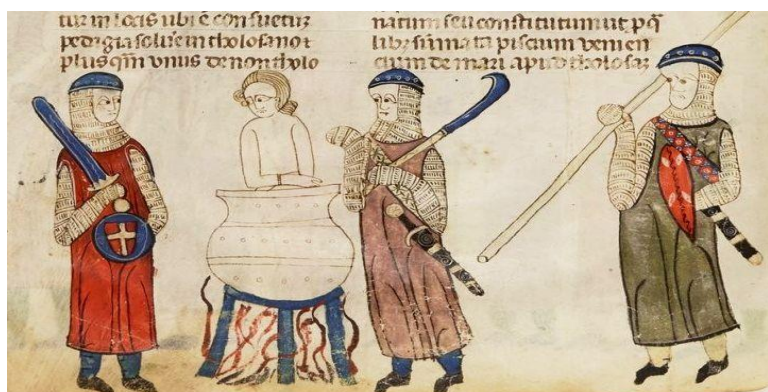 tur in locis ubi ē consuetuꝫ
pedagia solue in tholosano ⁊
plusqm vnus de non tholo
natum seu constitutum ut p q̄
libꝫ saumata piscium venien
cium de mari apud tholosaꝫ